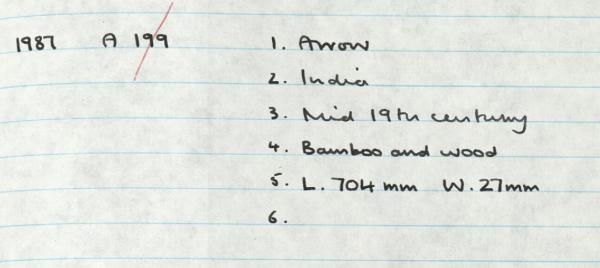 1987 A 199 1. Arrow
2. India
3. Mid 19th century
4. Bamboo and wood
5. L. 704 mm W. 27mm
6.